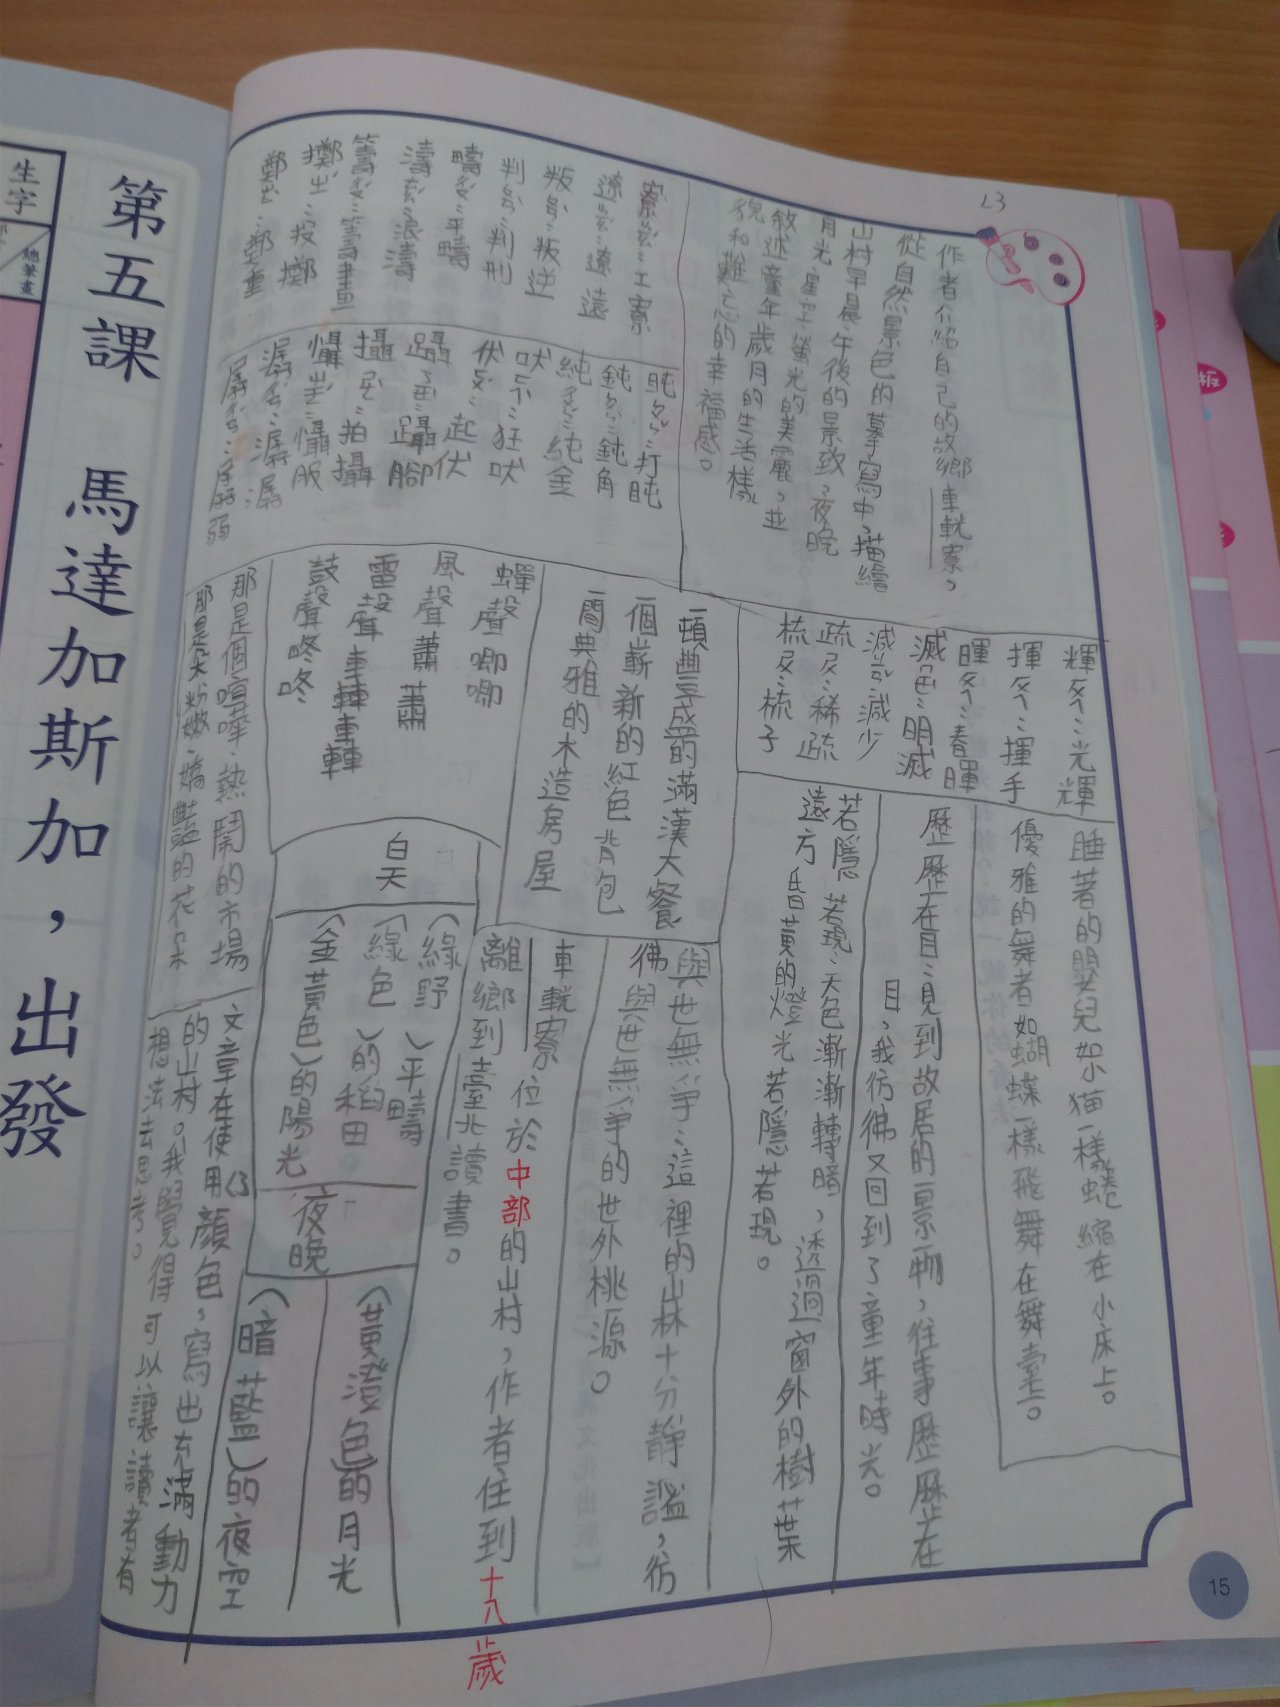 L3
作者介紹自己的故鄉車輄寮，
從自然景色的摹寫中，描繪
山村早晨、午後的景致，夜晚
月光、星空、螢光的美麗，並
敘述童年歲月的生活樣
貌和難忘的幸福感。
寮ㄌㄧㄠˊ：工寮
遼ㄌㄧㄠˊ：遼遠
叛ㄆㄢˋ：叛逆
判ㄆㄢˋ：判刑
疇ㄔㄡˊ：平疇
濤ㄊㄠˊ：浪濤
籌ㄔㄡˊ：籌畫
擲ㄓˊ：投擲
鄭ㄓㄥˋ：鄭重
盹ㄉㄨㄣˇ：打盹
鈍ㄉㄨㄣˋ：鈍角
純ㄔㄨㄣˊ：純金
吠ㄈㄟˋ：狂吠
伏ㄈㄨˊ：起伏
躡ㄋㄧㄝˋ：躡腳
攝ㄕㄜˋ：拍攝
懾ㄓㄜˊ：懾服
潺ㄔㄢˊ：潺潺
孱ㄔㄢˊ：孱弱
輝ㄏㄨㄟ：光輝
揮ㄏㄨㄟ：揮手
暉ㄏㄨㄟ：春暉
滅ㄇㄧㄝˋ：明滅
減ㄐㄧㄢˇ：減少
疏ㄕㄨ：稀疏
梳ㄕㄨ：梳子
一頓豐盛的滿漢大餐
一個嶄新的紅色背包
一間典雅的木造房屋
蟬聲唧唧
風聲蕭蕭
雷聲轟轟
鼓聲咚咚
那是個喧嘩、熱鬧的市場
那是朵粉嫩、嬌豔的花朵
睡著的嬰兒如小貓一樣蜷縮在小床上。
優雅的舞者如蝴蝶一樣飛舞在舞臺上。
歷歷在目：見到故居的一景一物，往事歷歷在
目，我彷彿又回到了童年時光。
若隱若現：天色漸漸轉暗，透過窗外的樹葉
遠方昏黃的燈光若隱若現。
與世無爭：這裡的山林十分靜謐，彷
彿與世無爭的世外桃源。
車輄寮位於中部的山村，作者住到十八歲
離鄉到臺北讀書。
白天
（綠野）平疇
（綠色）的稻田
（金黃色）的陽光
夜晚
（黃澄色）的月光
（暗藍）的夜空
文章在使用顏色，寫出充滿動力
的山村。我覺得可以讓讀者有
想法去思考。
15
第五課 馬達加斯加，出發
生字
總筆畫
板